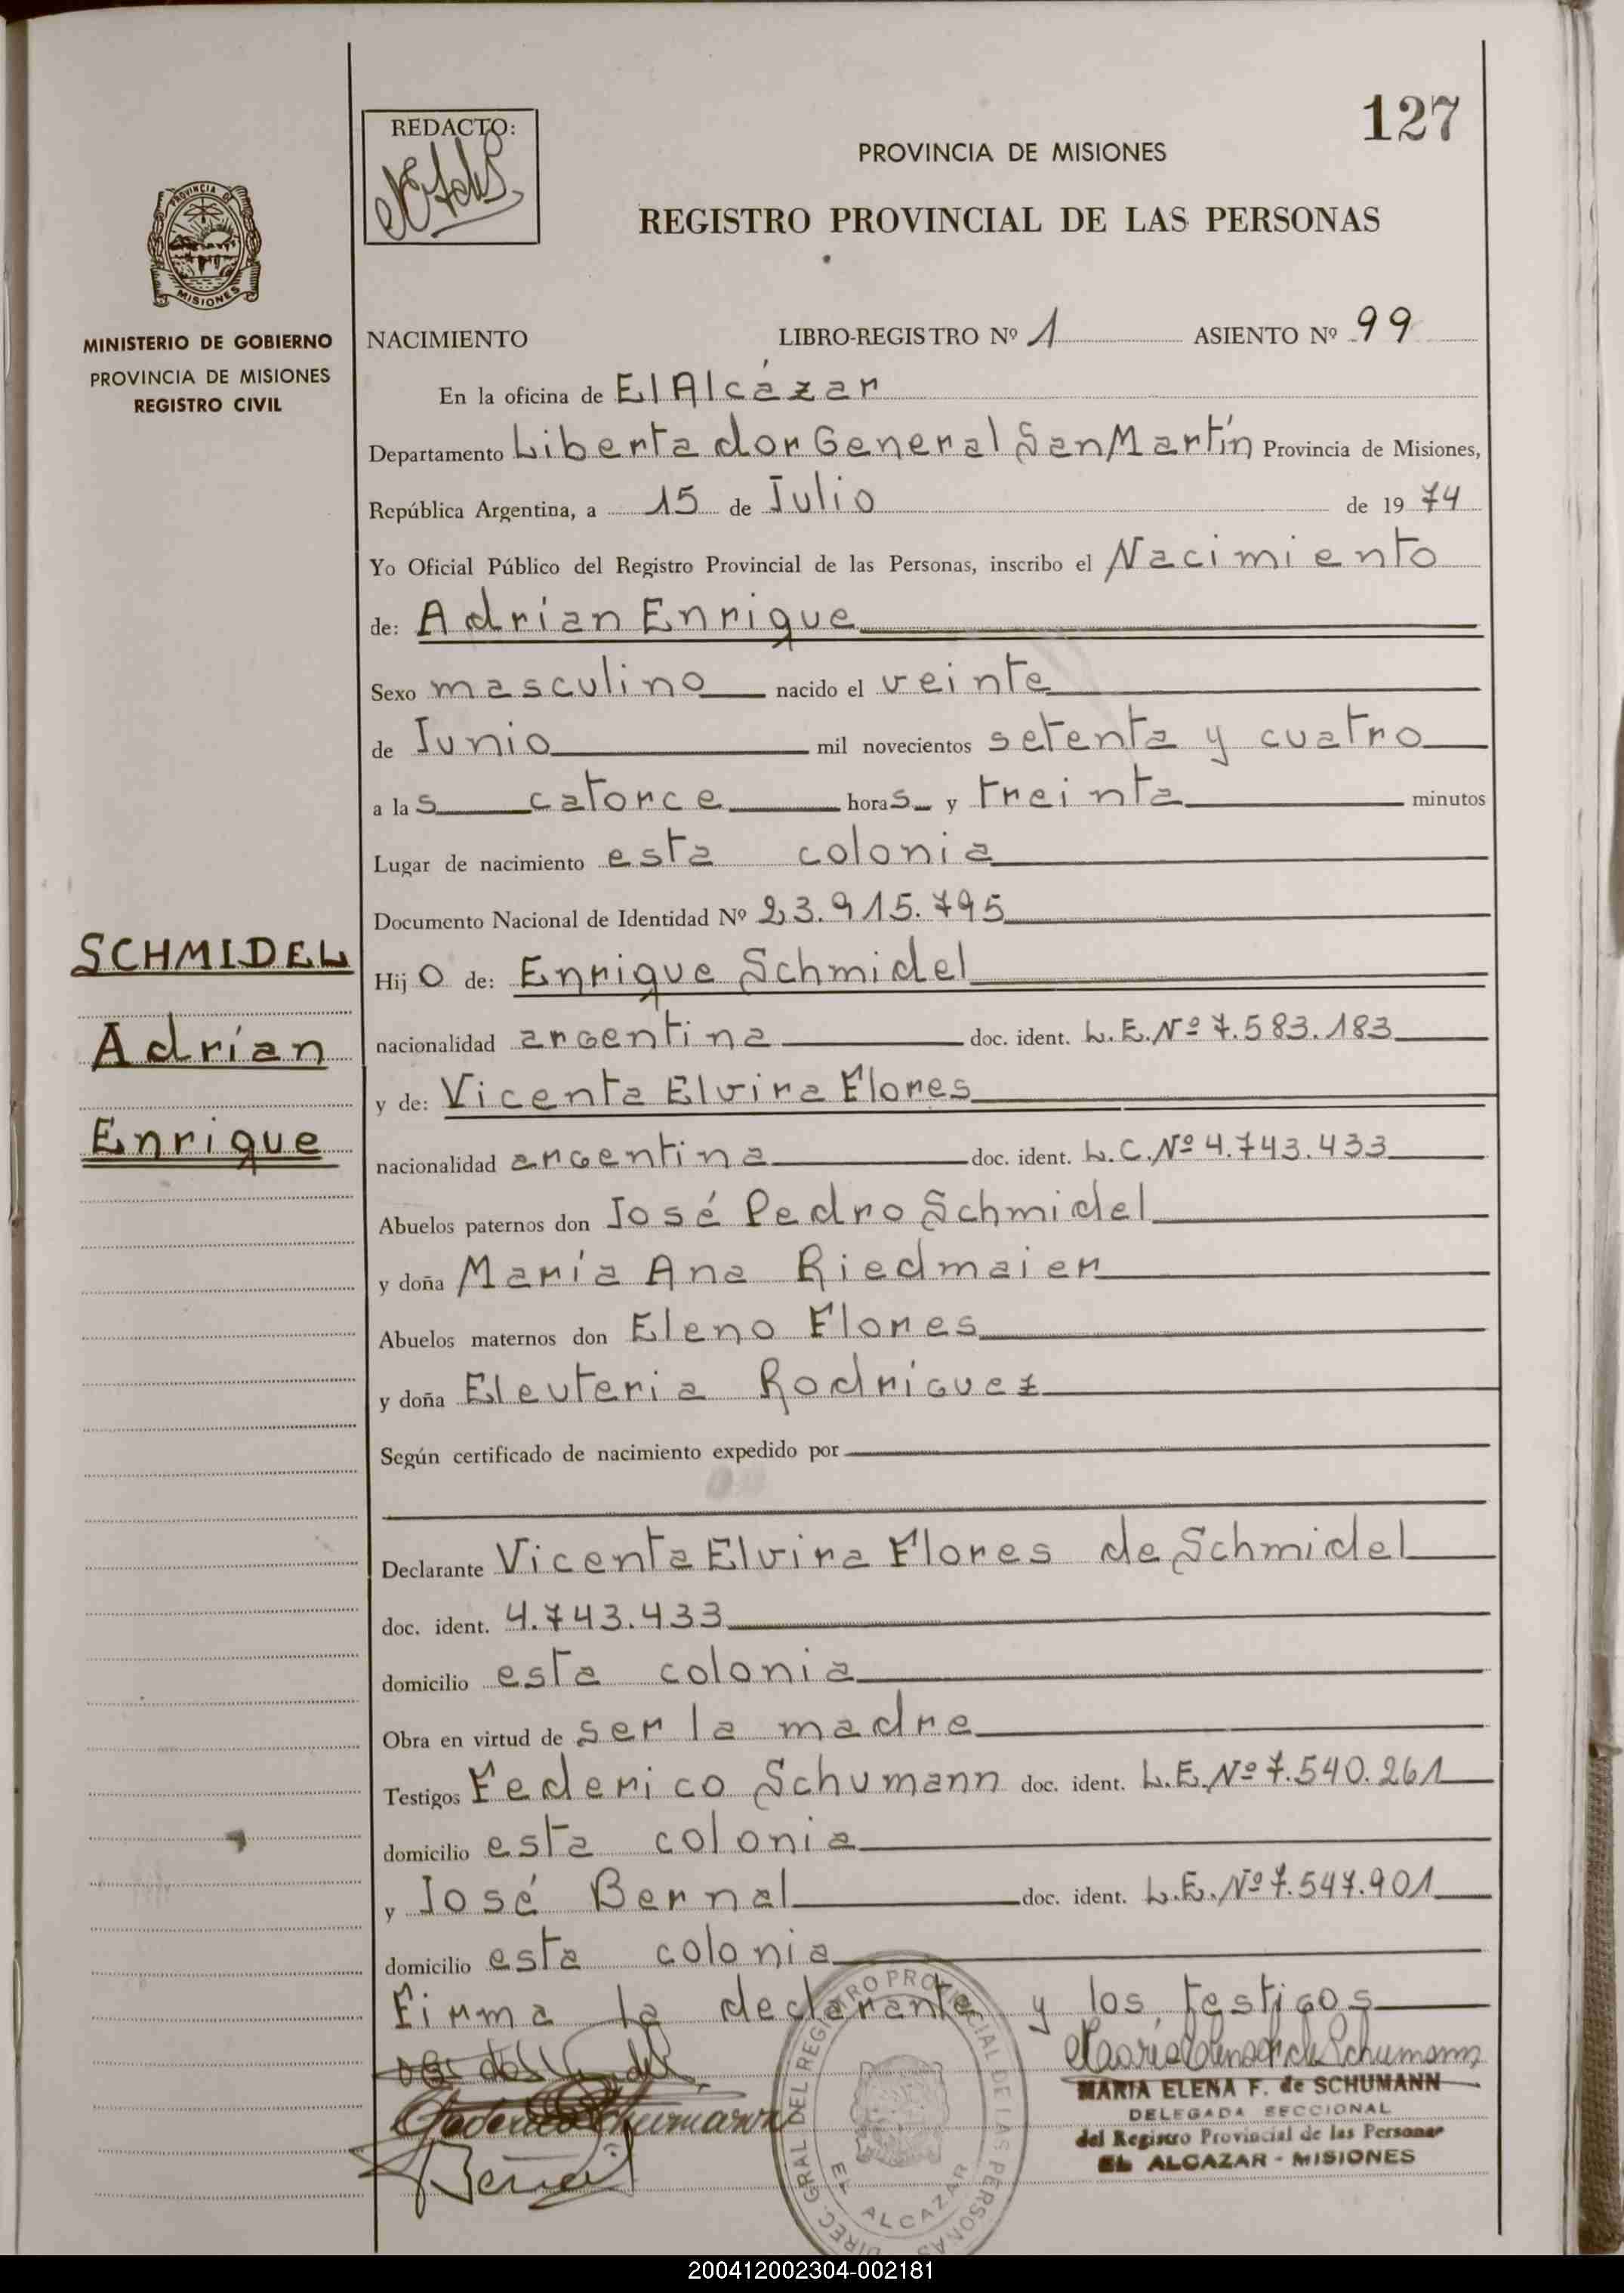 127
REDACTO:
PROVINCIA DE MISIONES
REGISTRO PROVINCIAL DE LAS PERSONAS
PROVINCIA DE
MISIONES
MINISTERIO DE GOBIERNO
PROVINCIA DE MISIONES
REGISTRO CIVIL
NACIMIENTO LIBRO-REGISTRO Nº 1 ASIENTO Nº 99
En la oficina de El Alcázar
Departamento Libertador General San Martín Provincia de Misiones,
República Argentina, a 15 de Julio de 19 74
Yo Oficial Público del Registro Provincial de las Personas, inscribo el Nacimiento
de: Adrían Enrique
Sexo masculino nacido el veinte
de Junio mil novecientos setenta y cuatro
a las catorce horas y treinta minutos
Lugar de nacimiento esta colonia
Documento Nacional de Identidad Nº 23.915.795
SCHMIDEL
Adrían
Enrique
Hijo de: Enrique Schmidel
nacionalidad argentina doc. ident. L.E.Nº 7.583.183
y de: Vicenta Elvira Flores
nacionalidad argentina doc. ident. L.C.Nº 4.743.433
Abuelos paternos don José Pedro Schmidel
y doña María Ana Riedmaier
Abuelos maternos don Eleno Flores
y doña Eleuteria Rodríguez
Según certificado de nacimiento expedido por
Declarante Vicenta Elvira Flores de Schmidel
doc. ident. 4.743.433
domicilio esta colonia
Obra en virtud de ser la madre
Testigos Federico Schumann doc. ident. L.E.Nº 7.540.261
domicilio esta colonia
y José Bernal doc. ident. L.E.Nº 7.547.901
domicilio esta colonia
Firma la declarante y los testigos
Federico Schumann
Bernal
DIREC. GRAL DEL REGISTRO PROVINCIAL DE LAS PERSONAS
EL ALCAZAR
MARIA ELENA F. de SCHUMANN
DELEGADA SECCIONAL
del Registro Provincial de las Personas
EL ALCAZAR - MISIONES
200412002304-002181